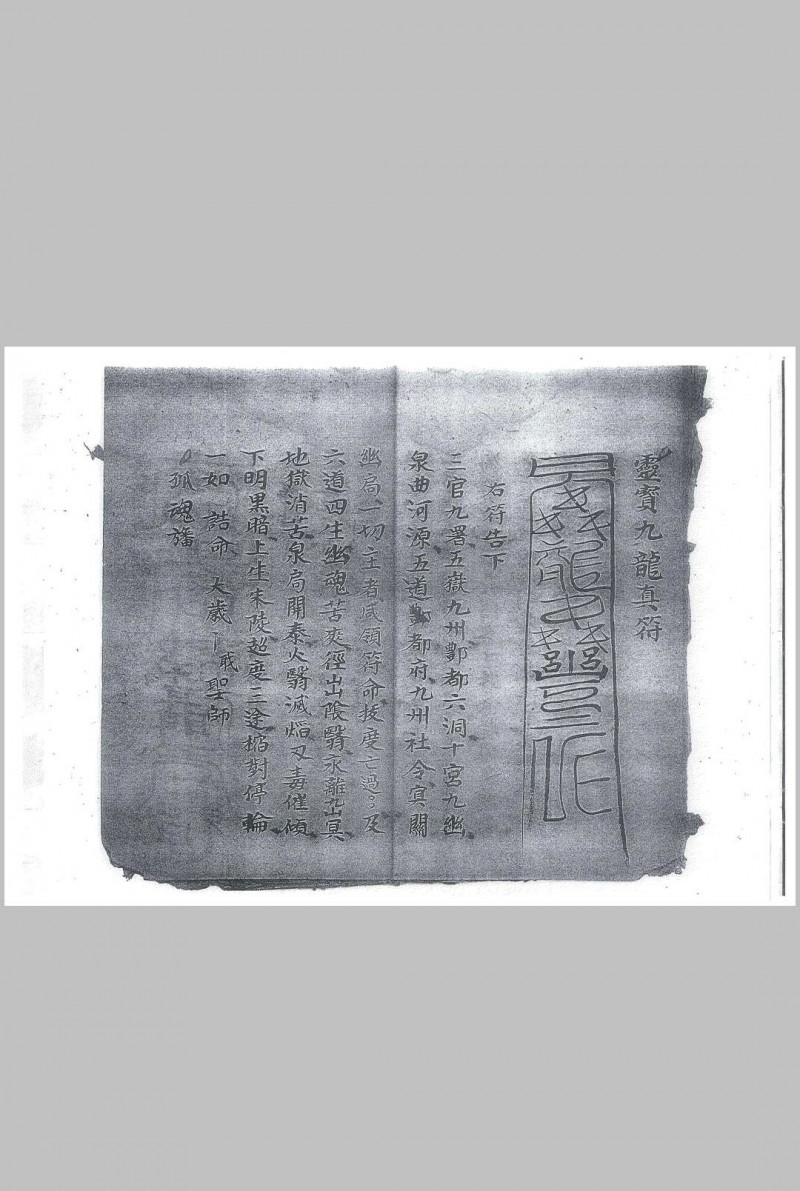 靈寳九龍真符
右符告下
三官九署五嶽九州酆都六洞十宮九幽
泉曲河源五道酆都府九州社令冥關
幽局一切主者咸領符命拔度亡過〻及
六道四生幽魂苦爽徑出陰翳永離幽冥
地獄消苦泉局開泰火翳滅熖刃毒催傾
下明黒暗上生朱陵超度三途輪對停輪
一如 誥命 太歲 下 聖師
孤魂旛